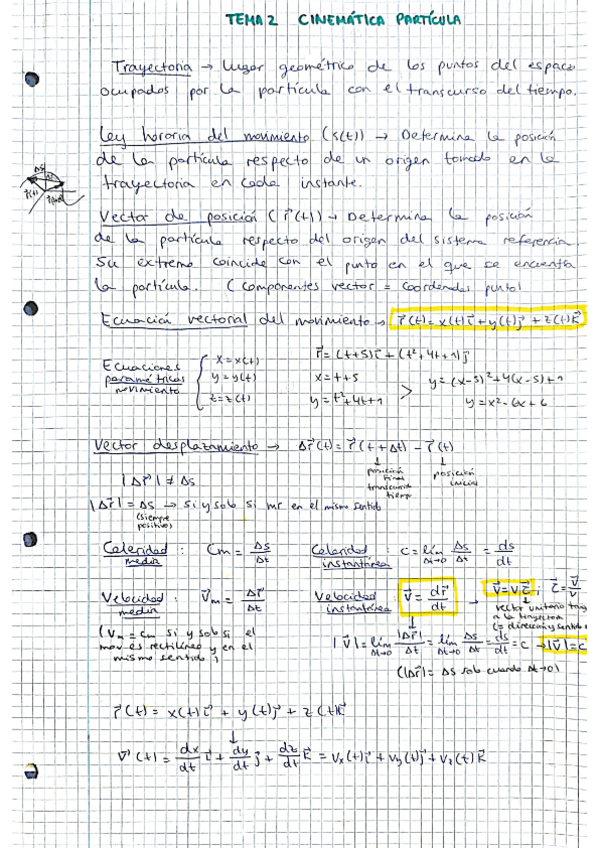 TEMA 2 CINEMÁTICA PARTÍCULA
Trayectoria → Lugar geométrico de los puntos del espacio
ocupados por la partícula con el transcurso del tiempo.
Ley horaria del movimiento (s(t)) → Determina la posición
de la partícula respecto de un origen tomado en la
trayectoria en cada instante.
Δs
r⃗(t)
Vector de posición (r⃗(t)) → Determina la posición
de la partícula respecto del origen del sistema referencia.
Su extremo coincide con el punto en el que se encuentra
la partícula. (componentes vector = coordenadas punto)
Ecuación vectorial del movimiento → r⃗(t) = x(t)i⃗ + y(t)j⃗ + z(t)k⃗
Ecuaciones paramétricas movimiento { x = x(t) y = y(t) z = z(t)
r⃗ = (t+5)i⃗ + (t²+4t+1)j⃗
x = t+5
y = t²+4t+1
> y = (x-5)²+4(x-5)+1
y = x²-6x+6
Vector desplazamiento → Δr⃗(t) = r⃗(t+Δt) - r⃗(t)
↓ posición final transcurrido tiempo
↓ posición inicial
|Δr⃗| ≠ Δs
|Δr⃗| = Δs → si y solo si mr en el mismo sentido
(siempre positivo)
Celeridad media : Cm = Δs/Δt
Celeridad instantánea : c = lím Δt→0 Δs/Δt = ds/dt
Velocidad media : v⃗m = Δr⃗/Δt
Velocidad instantánea : v⃗ = dr⃗/dt → v⃗ = v·τ⃗ ; τ⃗ = v⃗/v
↓ vector unitario tang
a la trayectoria
(= dirección y sentido
(Vm = Cm si y solo si el
mov es rectilíneo y en el
mismo sentido)
|v⃗| = lím Δt→0 |Δr⃗|/Δt = lím Δt→0 Δs/Δt = ds/dt = c → |v⃗| = c
(|Δr⃗| = Δs solo cuando Δt→0)
r⃗(t) = x(t)i⃗ + y(t)j⃗ + z(t)k⃗
↓
v⃗(t) = dx/dt i⃗ + dy/dt j⃗ + dz/dt k⃗ = vx(t)i⃗ + vy(t)j⃗ + vz(t)k⃗